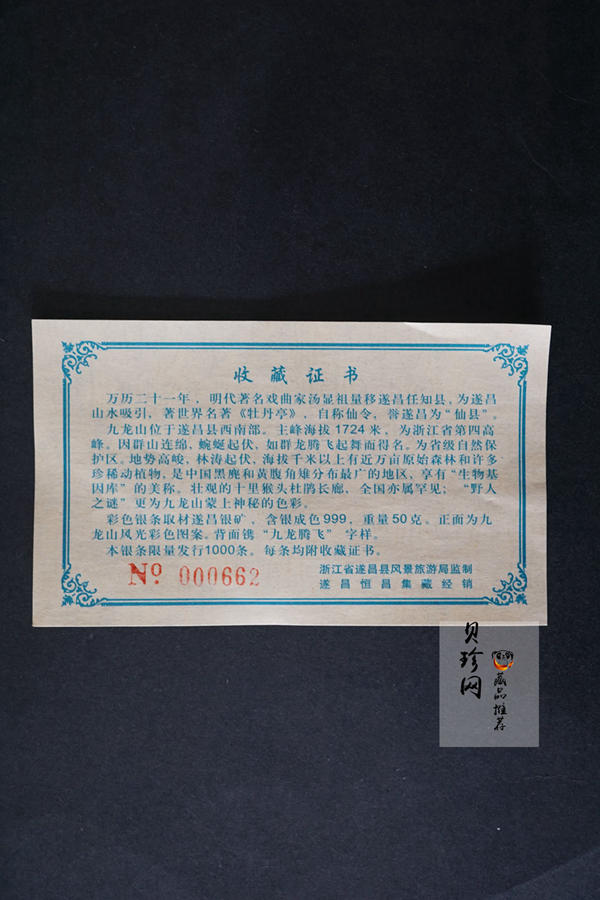 收藏证书
万历二十一年，明代著名戏曲家汤显祖量移遂昌任知县。为遂昌
山水吸引，著世界名著《牡丹亭》，自称仙令，誉遂昌为“仙县”。
九龙山位于遂昌县西南部。主峰海拔1724米，为浙江省第四高
峰。因群山连绵，蜿蜒起伏、如群龙腾飞起舞而得名。为省级自然保
护区。地势高峻，林涛起伏、海拔千米以上有近万亩原始森林和许多
珍稀动植物，是中国黑麂和黄腹角雉分布最广的地区、享有“生物基
因库”的美称。壮观的十里猴头杜鹃长廊，全国亦属罕见；“野人
之谜”更为九龙山蒙上神秘的色彩。
彩色银条取材遂昌银矿，含银成色999，重量50克。正面为九
龙山风光彩色图案。背面镌“九龙腾飞”字样。
本银条限量发行1000条。每条均附收藏证书。
No 000662
浙江省遂昌县风景旅游局监制
遂昌恒昌集藏经销
贝珍网
藏品推荐